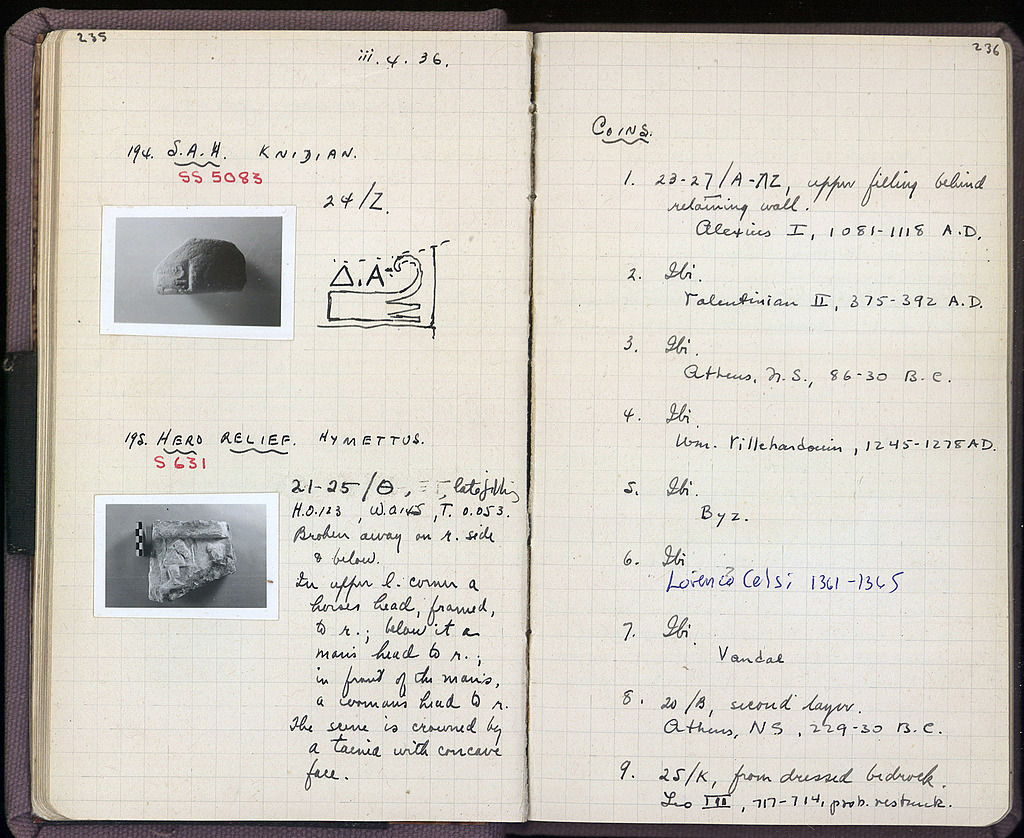 235
iii. 4. 36.
194. S.A.H. KNIDIAN.
SS 5083
24/Z.
Δ.Α
195. HERO RELIEF. HYMETTUS.
S 631
21-25/Θ, late filling
H.0.123, W.0.145, T. 0.053.
Broken away on r. side
& below.
In upper l. corner a
horses head, framed,
to r.; below it a
mans head to r.;
in front of the mans,
a womans head to r.
The scene is crowned by
a taenia with concave
face.
236
COINS.
1. 23-27/A-ΠΖ, upper filling behind
retaining wall.
Alexius I, 1081-1118 A.D.
2. Ibi.
Valentinian II, 375-392 A.D.
3. Ibi.
Athens, N.S., 86-30 B.C.
4. Ibi.
Wm. Villehardouin, 1245-1278 A.D.
5. Ibi.
Byz.
6. Ibi
Lorenzo Celsi 1361-1365
7. Ibi.
Vandal
8. 20/B, second layer.
Athens, NS, 229-30 B.C.
9. 25/K, from dressed bedrock.
Leo III, 717-714, prob. restruck.